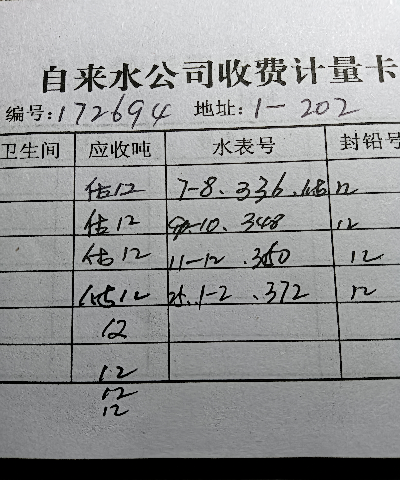 自来水公司收费计量卡
编号:172694 地址:1-202
卫生间 应收吨 水表号 封铅号
估12 7-8、336、估12
估12 9-10、348 12
估12 11-12、360 12
估12 25、1-2、372 12
12
12
12
12